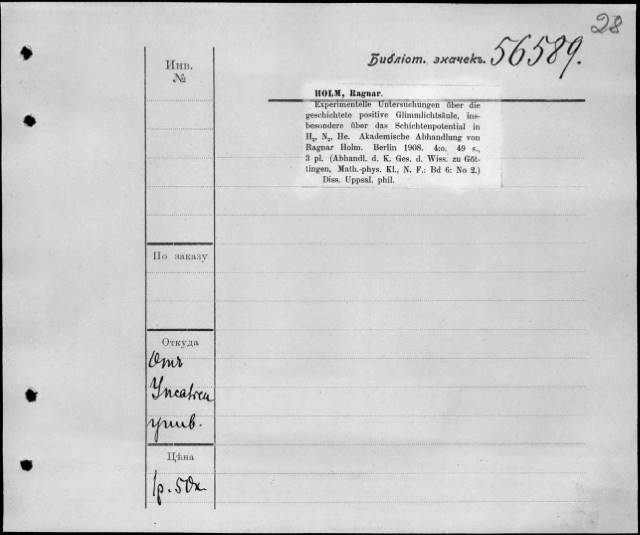 28
Библіот. значекъ. 56589.
Инв.
№
HOLM, Ragnar.
Experimentelle Untersuchungen über die
geschichtete positive Glimmlichtsäule, ins-
besondere über das Schichtenpotential in
H₂, N₂, He. Akademische Abhandlung von
Ragnar Holm. Berlin 1908. 4:o. 49 s.,
3 pl. (Abhandl. d. K. Ges. d. Wiss. zu Göt-
tingen, Math.-phys. Kl., N. F.: Bd 6: No 2.)
Diss. Uppsal. phil.
По заказу
Откуда
Отъ
унив.
Цѣна
1р. 50к